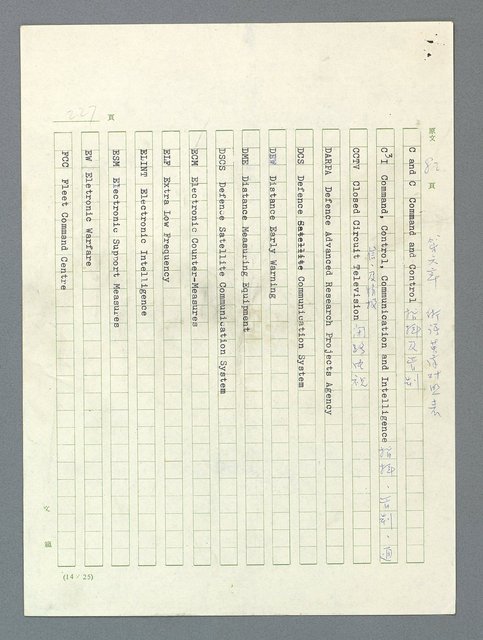 原文 82 頁
第六章 術語英漢対照表
C and C Command and Control 指揮及管制
C³I Command, Control, Communication and Intelligence 指揮、管制、通
信、及情報
CCTV Closed Circuit Television 閉路電視
DARPA Defence Advanced Research Projects Agency
DCS Defence Satellite Communication System
DEW Distance Early Warning
DME Distance Measuring Equipment
DSCS Defence Satellite Communication System
ECM Electronic Counter-Measures
ELF Extra Low Frequency
ELINT Electronic Intelligence
ESM Electronic Support Measures
EW Eletronic Warfare
FCC Fleet Command Centre
227 頁
(14 / 25)